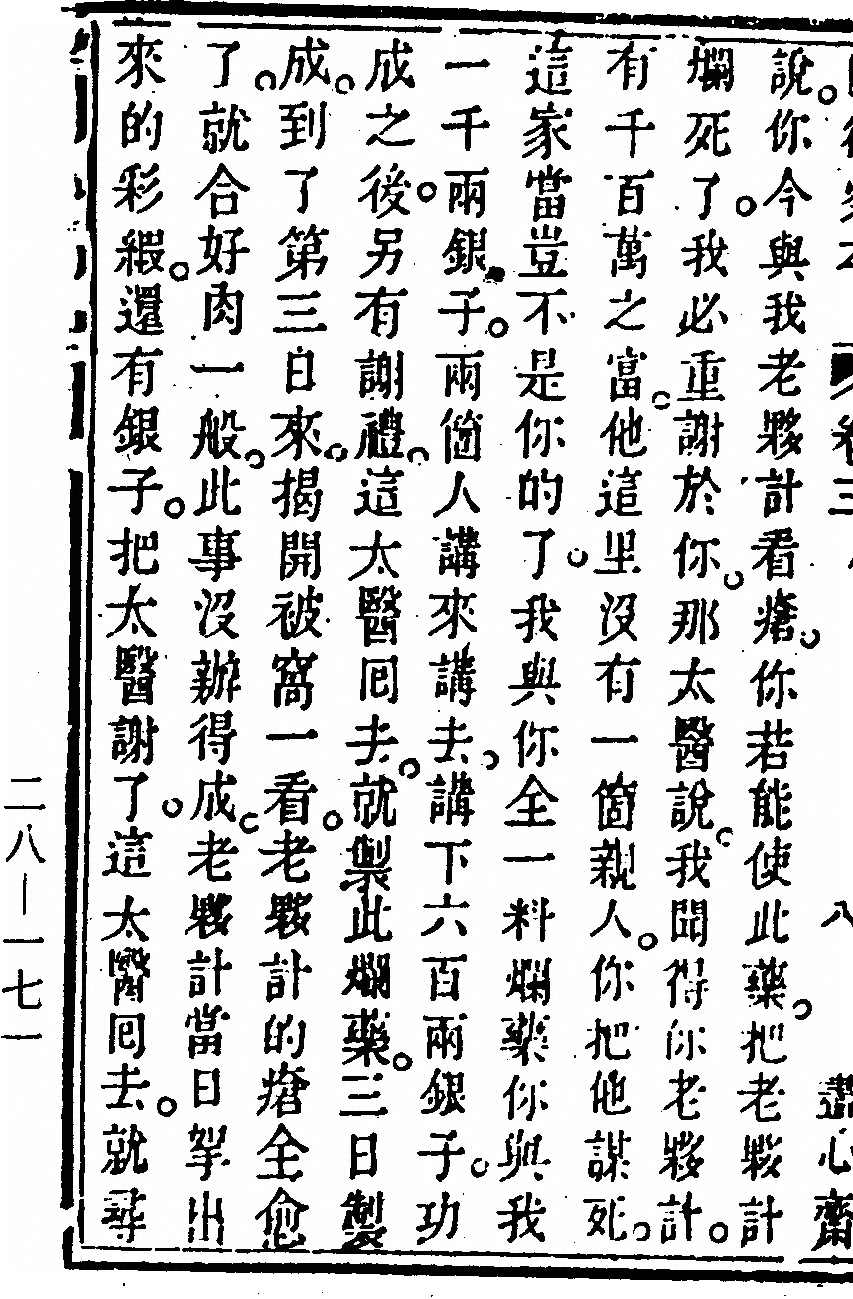 卷三 八 盡心齋
說你今與我老夥計看瘡你若能使此藥把老夥計
爛死了我必重謝於你那太醫說我聞得你老夥計
有千百萬之富他這里沒有一箇親人你把他謀死
這家當豈不是你的了我與你全一料爛藥你與我
一千兩銀子兩箇人講來講去講下六百兩銀子功
成之後另有謝禮這太醫囘去就製此爛藥三日製
成到了第三日來揭開被窩一看老夥計的瘡全愈
了就合好肉一般此事沒辦得成老夥計當日拏出
來的彩緞還有銀子把太醫謝了這太醫囘去就尋
二八—一七一